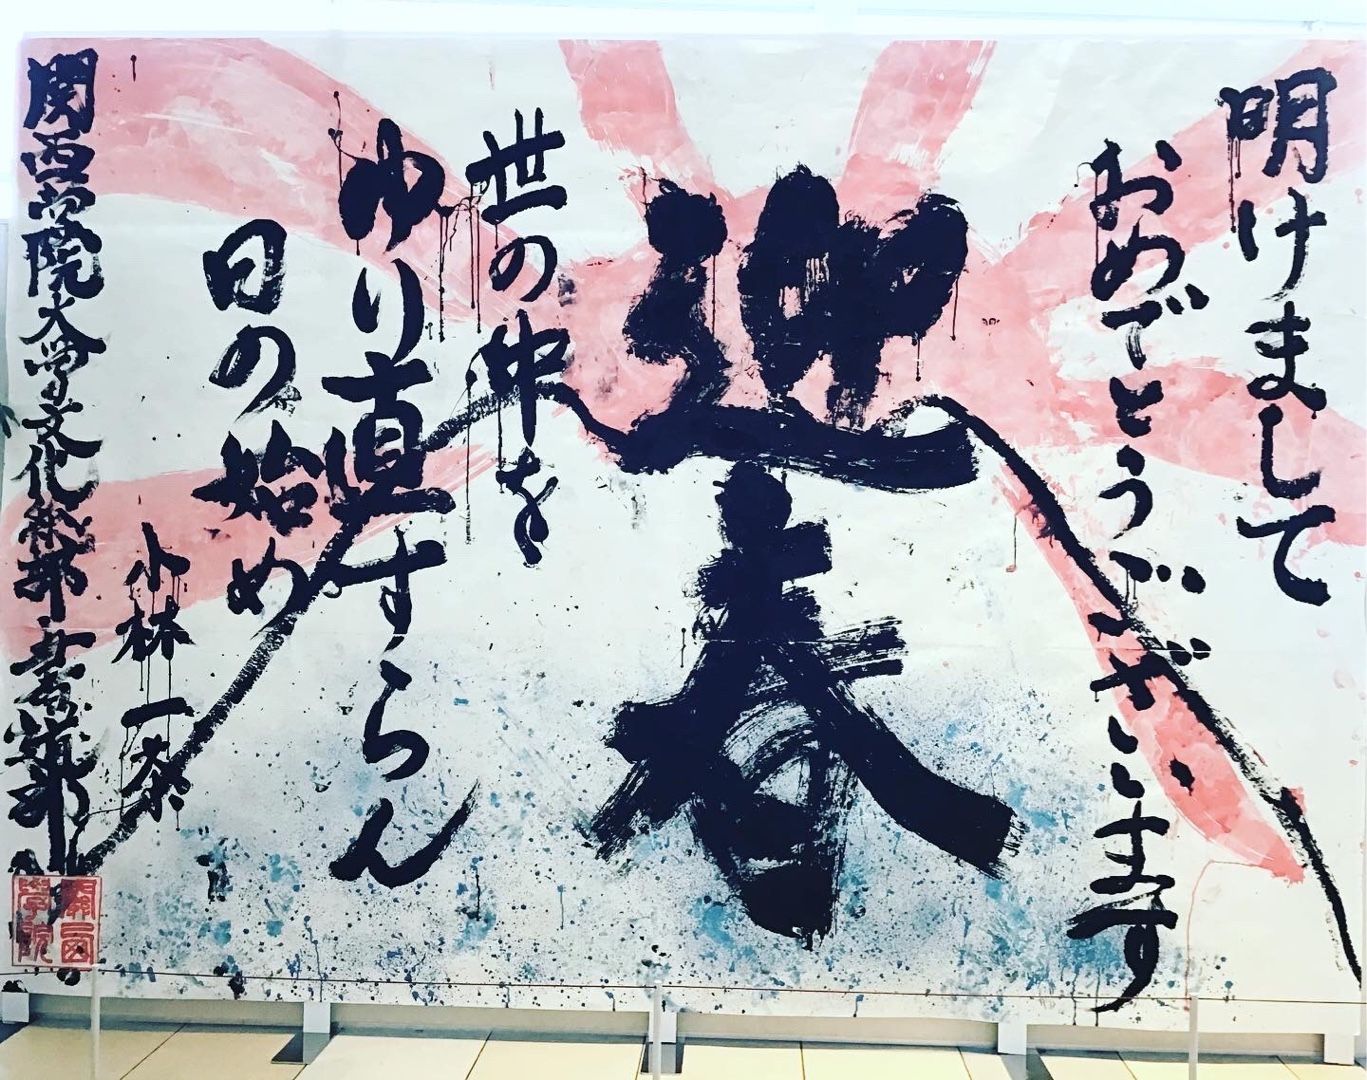 明けまして
おめでとうございます
迎春
世の中を
ゆり直すらん
日の始め
小林一茶
関西学院大学文化総部書道部
關西
學院